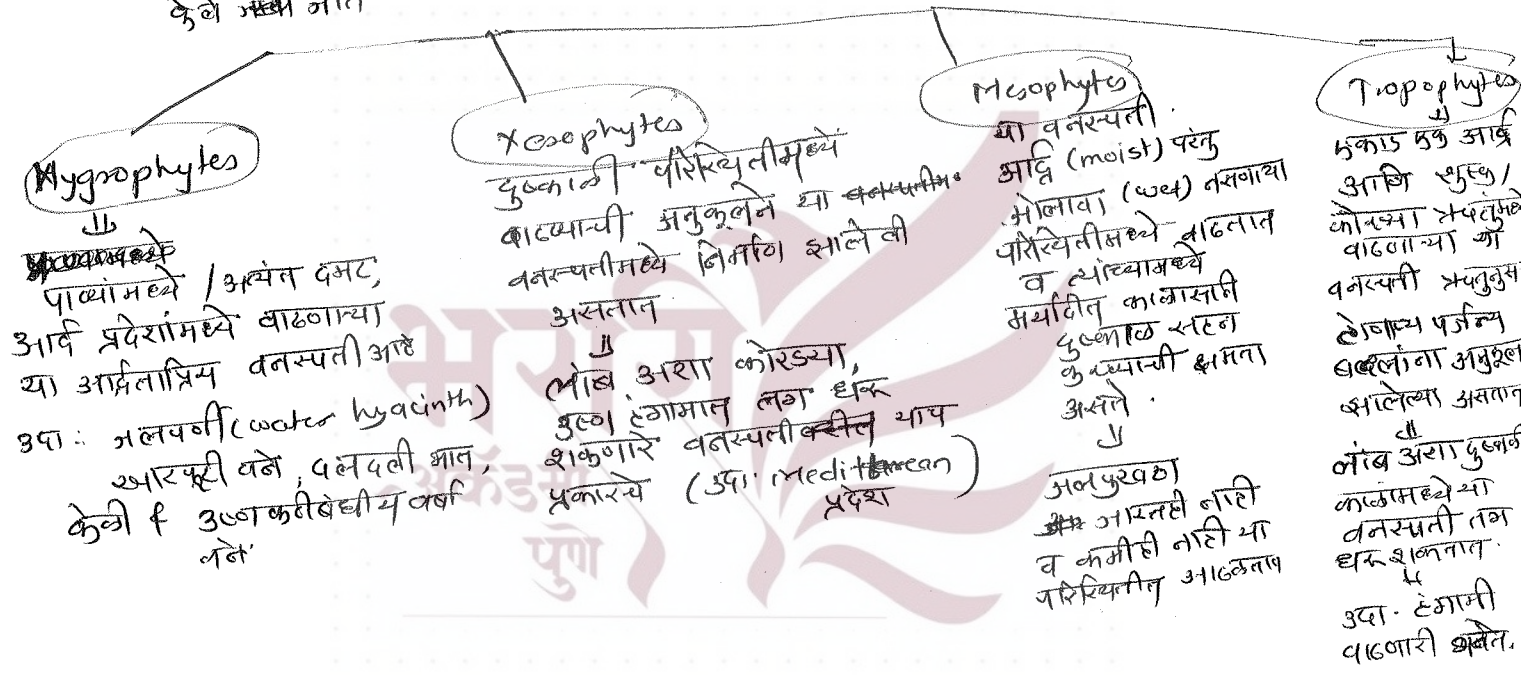 केले जाते
Hygrophytes
पाण्यामध्ये / अत्यंत दमट,
आर्द्र प्रदेशांमध्ये वाढणाऱ्या
या आर्द्रताप्रिय वनस्पती आहे
उदा: जलपर्णी (water hyacinth)
खारफूटी वने, दलदली भात,
केळी f उष्णकटीबंधीय वर्षा
वने
Xerophytes
दुष्काळी परिस्थितीमध्ये
वाढण्याची अनुकूलने या
वनस्पतीमध्ये निर्माण झालेली
असतात
लांब अशा कोरड्या,
उष्ण हंगामात तग धरू
शकणारे वनस्पती याच
प्रकारचे (उदा. Mediterrean
प्रदेश)
Mesophytes
या वनस्पती
आर्द्र (moist) परंतु
ओलावा (wet) नसणाऱ्या
परिस्थितीमध्ये वाढतात
व त्यांच्यामध्ये
मर्यादीत काळासाठी
दुष्काळ सहन
करण्याची क्षमता
असते.
जलपुरवठा
जास्तही नाही
व कमीही नाही या
परिस्थितीत आढळतात
Tropophytes
एकाड एक आर्द्र
आणि शुष्क/
कोरड्या ऋतुमध्ये
वाढणाऱ्या या
वनस्पती ऋतुनुसार
होणाऱ्या पर्जन्य
बदलांना अनुकूल
झालेल्या असतात
लांब अशा दुष्काळी
काळामध्ये या
वनस्पती तग
धरू शकतात.
उदा. हंगामी
वाढणारी गवत.
भराारी
अकॅडमी
पुणे